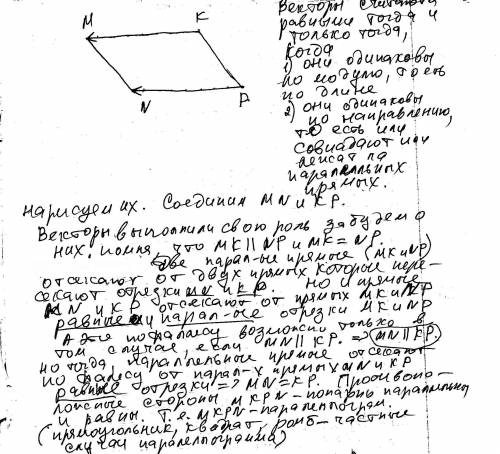 Векторы считаются
равными тогда и
только тогда,
когда
1) они одинаковы
по модулю, то есть
по длине
2) они одинаковы
по направлению,
то есть или
совпадают или
лежат на
параллельных
прямых.
M K
N P
Нарисуем их. Соединим MN и KP.
Векторы выполнили свою роль забудем о
них. помня, что MK || NP и MK = NP.
Две парал-ые прямые (MK и NP)
отсекают от двух прямых которые пере-
секают отрезки MN и KP. Но и прямые
MN и KP отсекают от прямых MK и NP
равные и парал-ые отрезки MK и NP
А это по фалесу возможно только в
том случае, если MN || KP. => MN || KP.
но тогда параллельные прямые отсекают
по фалесу от парал-х прямых MN и KP
равные отрезки => MN = KP. Противопо-
ложные стороны MKPN - попарно параллельны
и равны. Т.е. MKPN - параллелограм.
(прямоугольник, квадрат, ромб - частные
случаи паралелограмма)